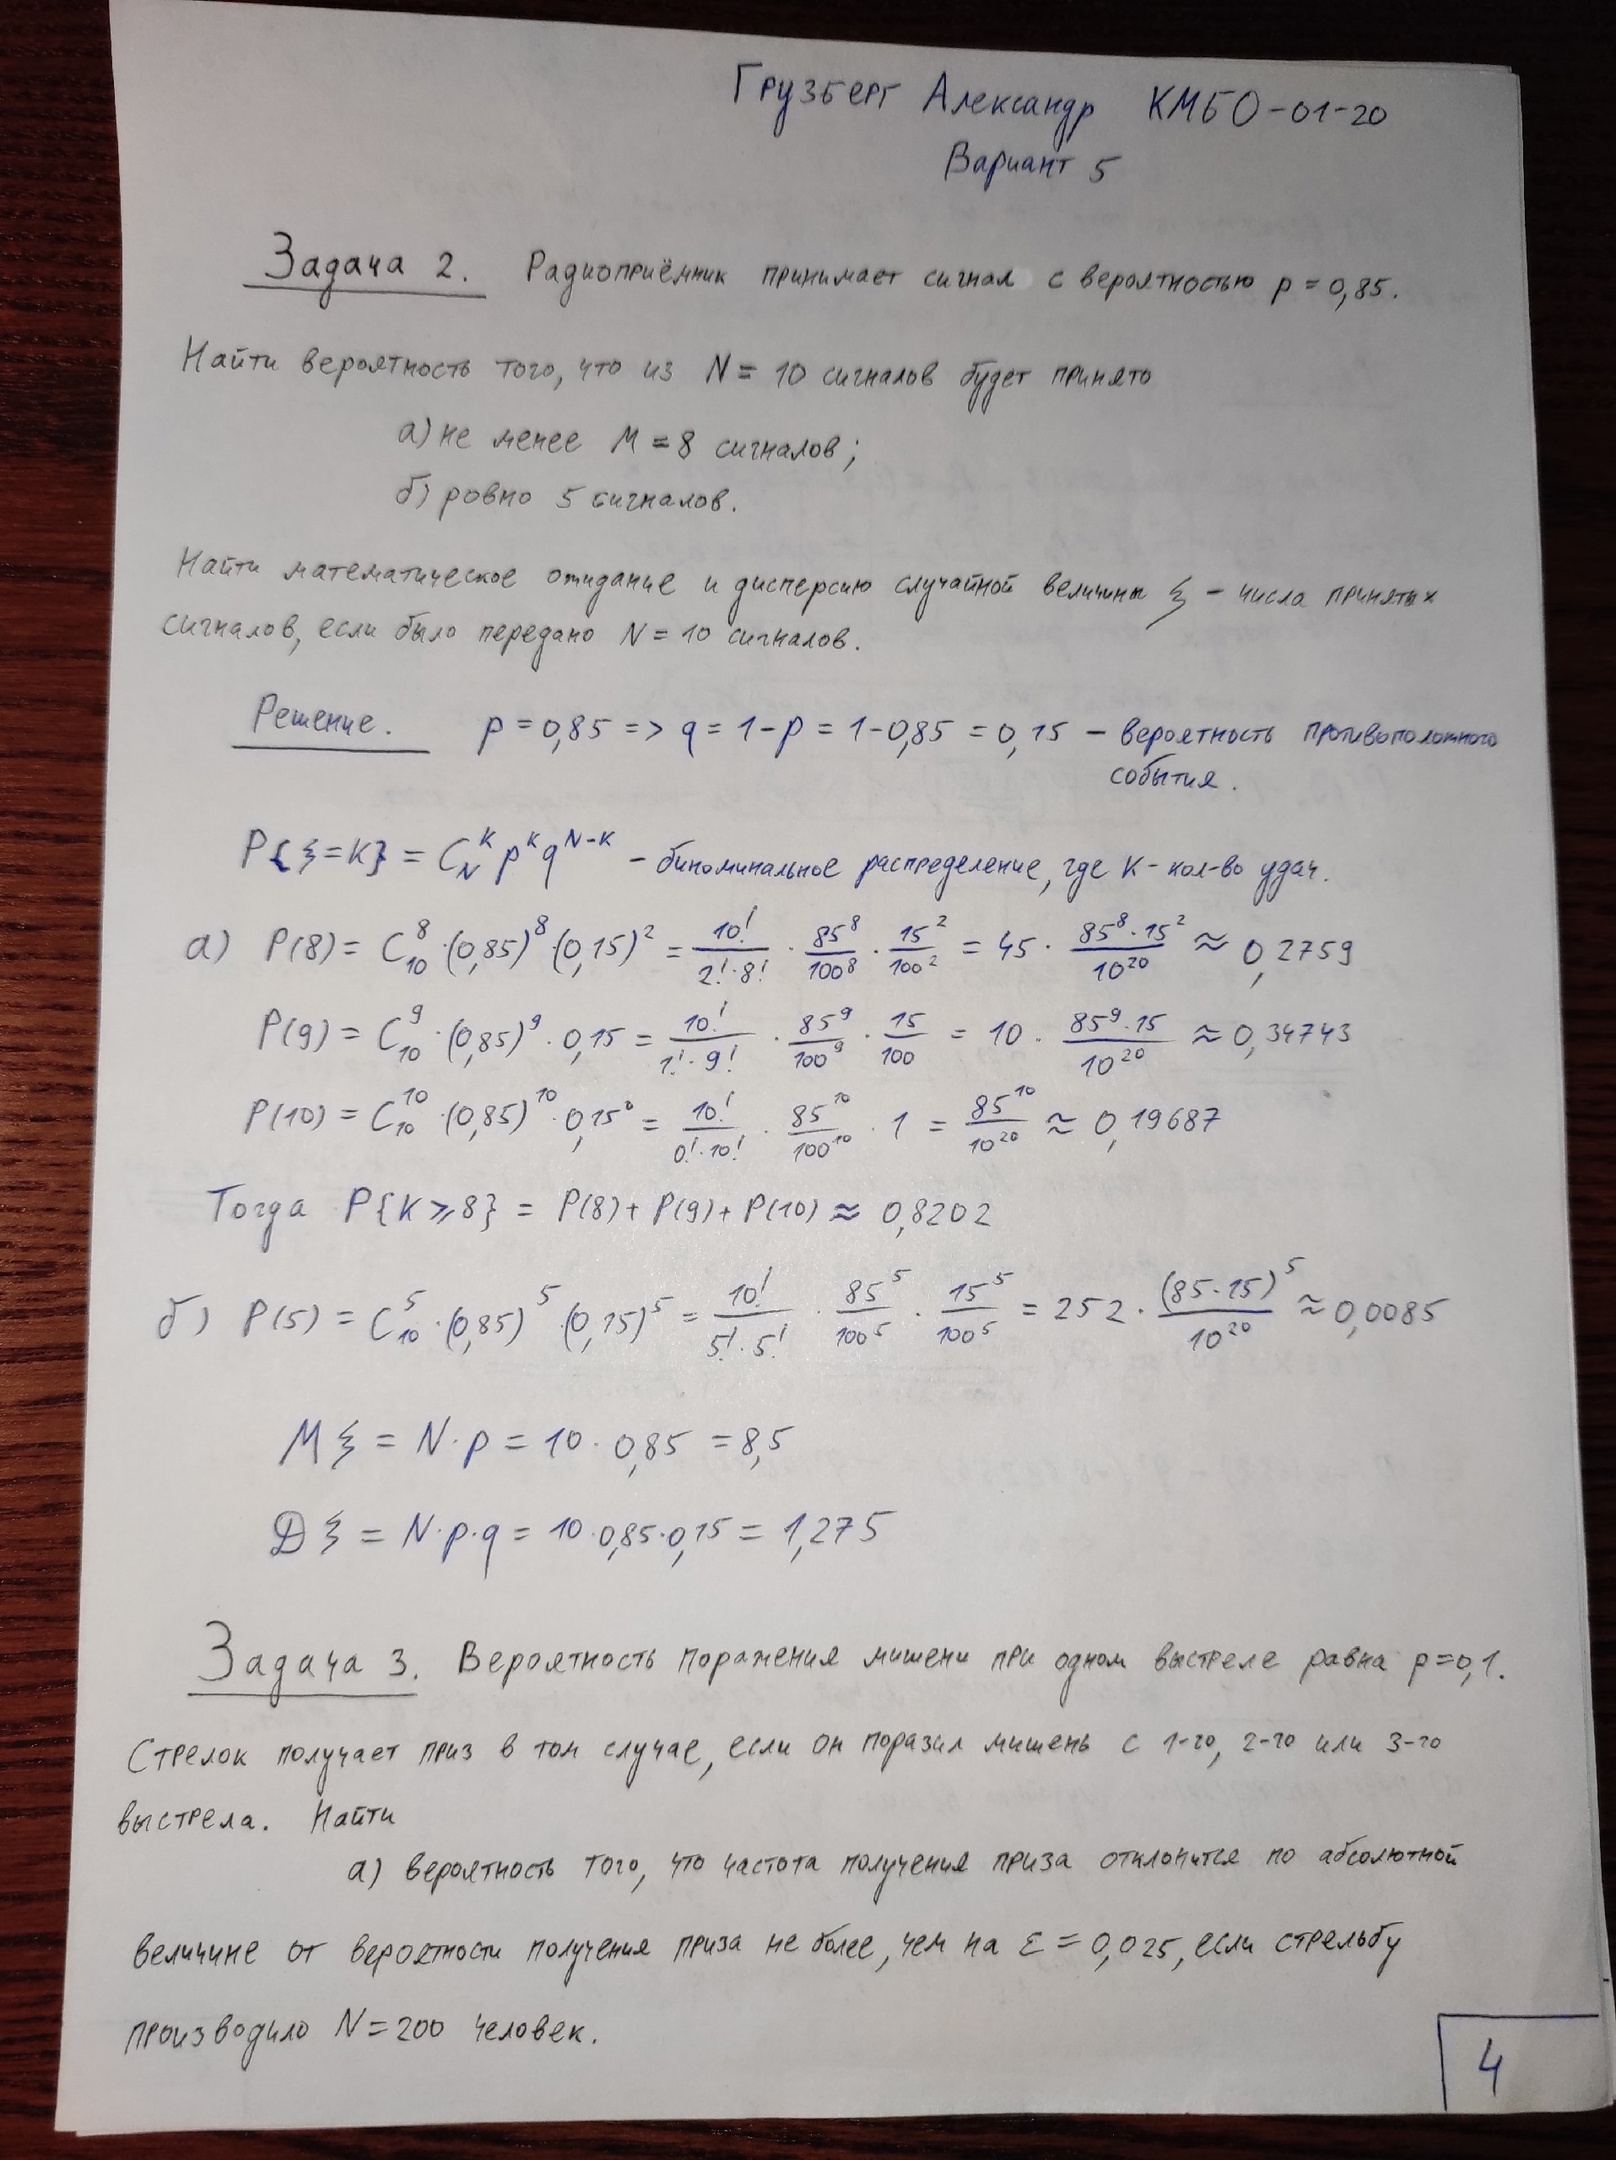 Грузберг Александр КМБО-01-20
Вариант 5
Задача 2. Радиоприёмник принимает сигнал с вероятностью p = 0,85.
Найти вероятность того, что из N = 10 сигналов будет принято
а) не менее M = 8 сигналов;
б) ровно 5 сигналов.
Найти математическое ожидание и дисперсию случайной величины ξ – числа принятых
сигналов, если было передано N = 10 сигналов.
Решение. p = 0,85 => q = 1 - p = 1 - 0,85 = 0,15 – вероятность противоположного
события.
P{ξ=K} = C_N^K p^K q^{N-K} – биноминальное распределение, где K - кол-во удач.
а) P(8) = C_10^8 · (0,85)^8 · (0,15)^2 = 10!/(2!·8!) · 85^8/100^8 · 15^2/100^2 = 45 · (85^8·15^2)/10^20 ≈ 0,2759
P(9) = C_10^9 · (0,85)^9 · 0,15 = 10!/(1!·9!) · 85^9/100^9 · 15/100 = 10 · (85^9·15)/10^20 ≈ 0,34743
P(10) = C_10^10 · (0,85)^10 · 0,15^0 = 10!/(0!·10!) · 85^10/100^10 · 1 = 85^10/10^20 ≈ 0,19687
Тогда P{K ⩾ 8} = P(8) + P(9) + P(10) ≈ 0,8202
б) P(5) = C_10^5 · (0,85)^5 · (0,15)^5 = 10!/(5!·5!) · 85^5/100^5 · 15^5/100^5 = 252 · (85·15)^5/10^20 ≈ 0,0085
Mξ = N·p = 10 · 0,85 = 8,5
Dξ = N·p·q = 10·0,85·0,15 = 1,275
Задача 3. Вероятность поражения мишени при одном выстреле равна p=0,1.
Стрелок получает приз в том случае, если он поразил мишень с 1-го, 2-го или 3-го
выстрела. Найти
а) вероятность того, что частота получения приза отклонится по абсолютной
величине от вероятности получения приза не более, чем на ε = 0,025, если стрельбу
производило N = 200 человек.
4